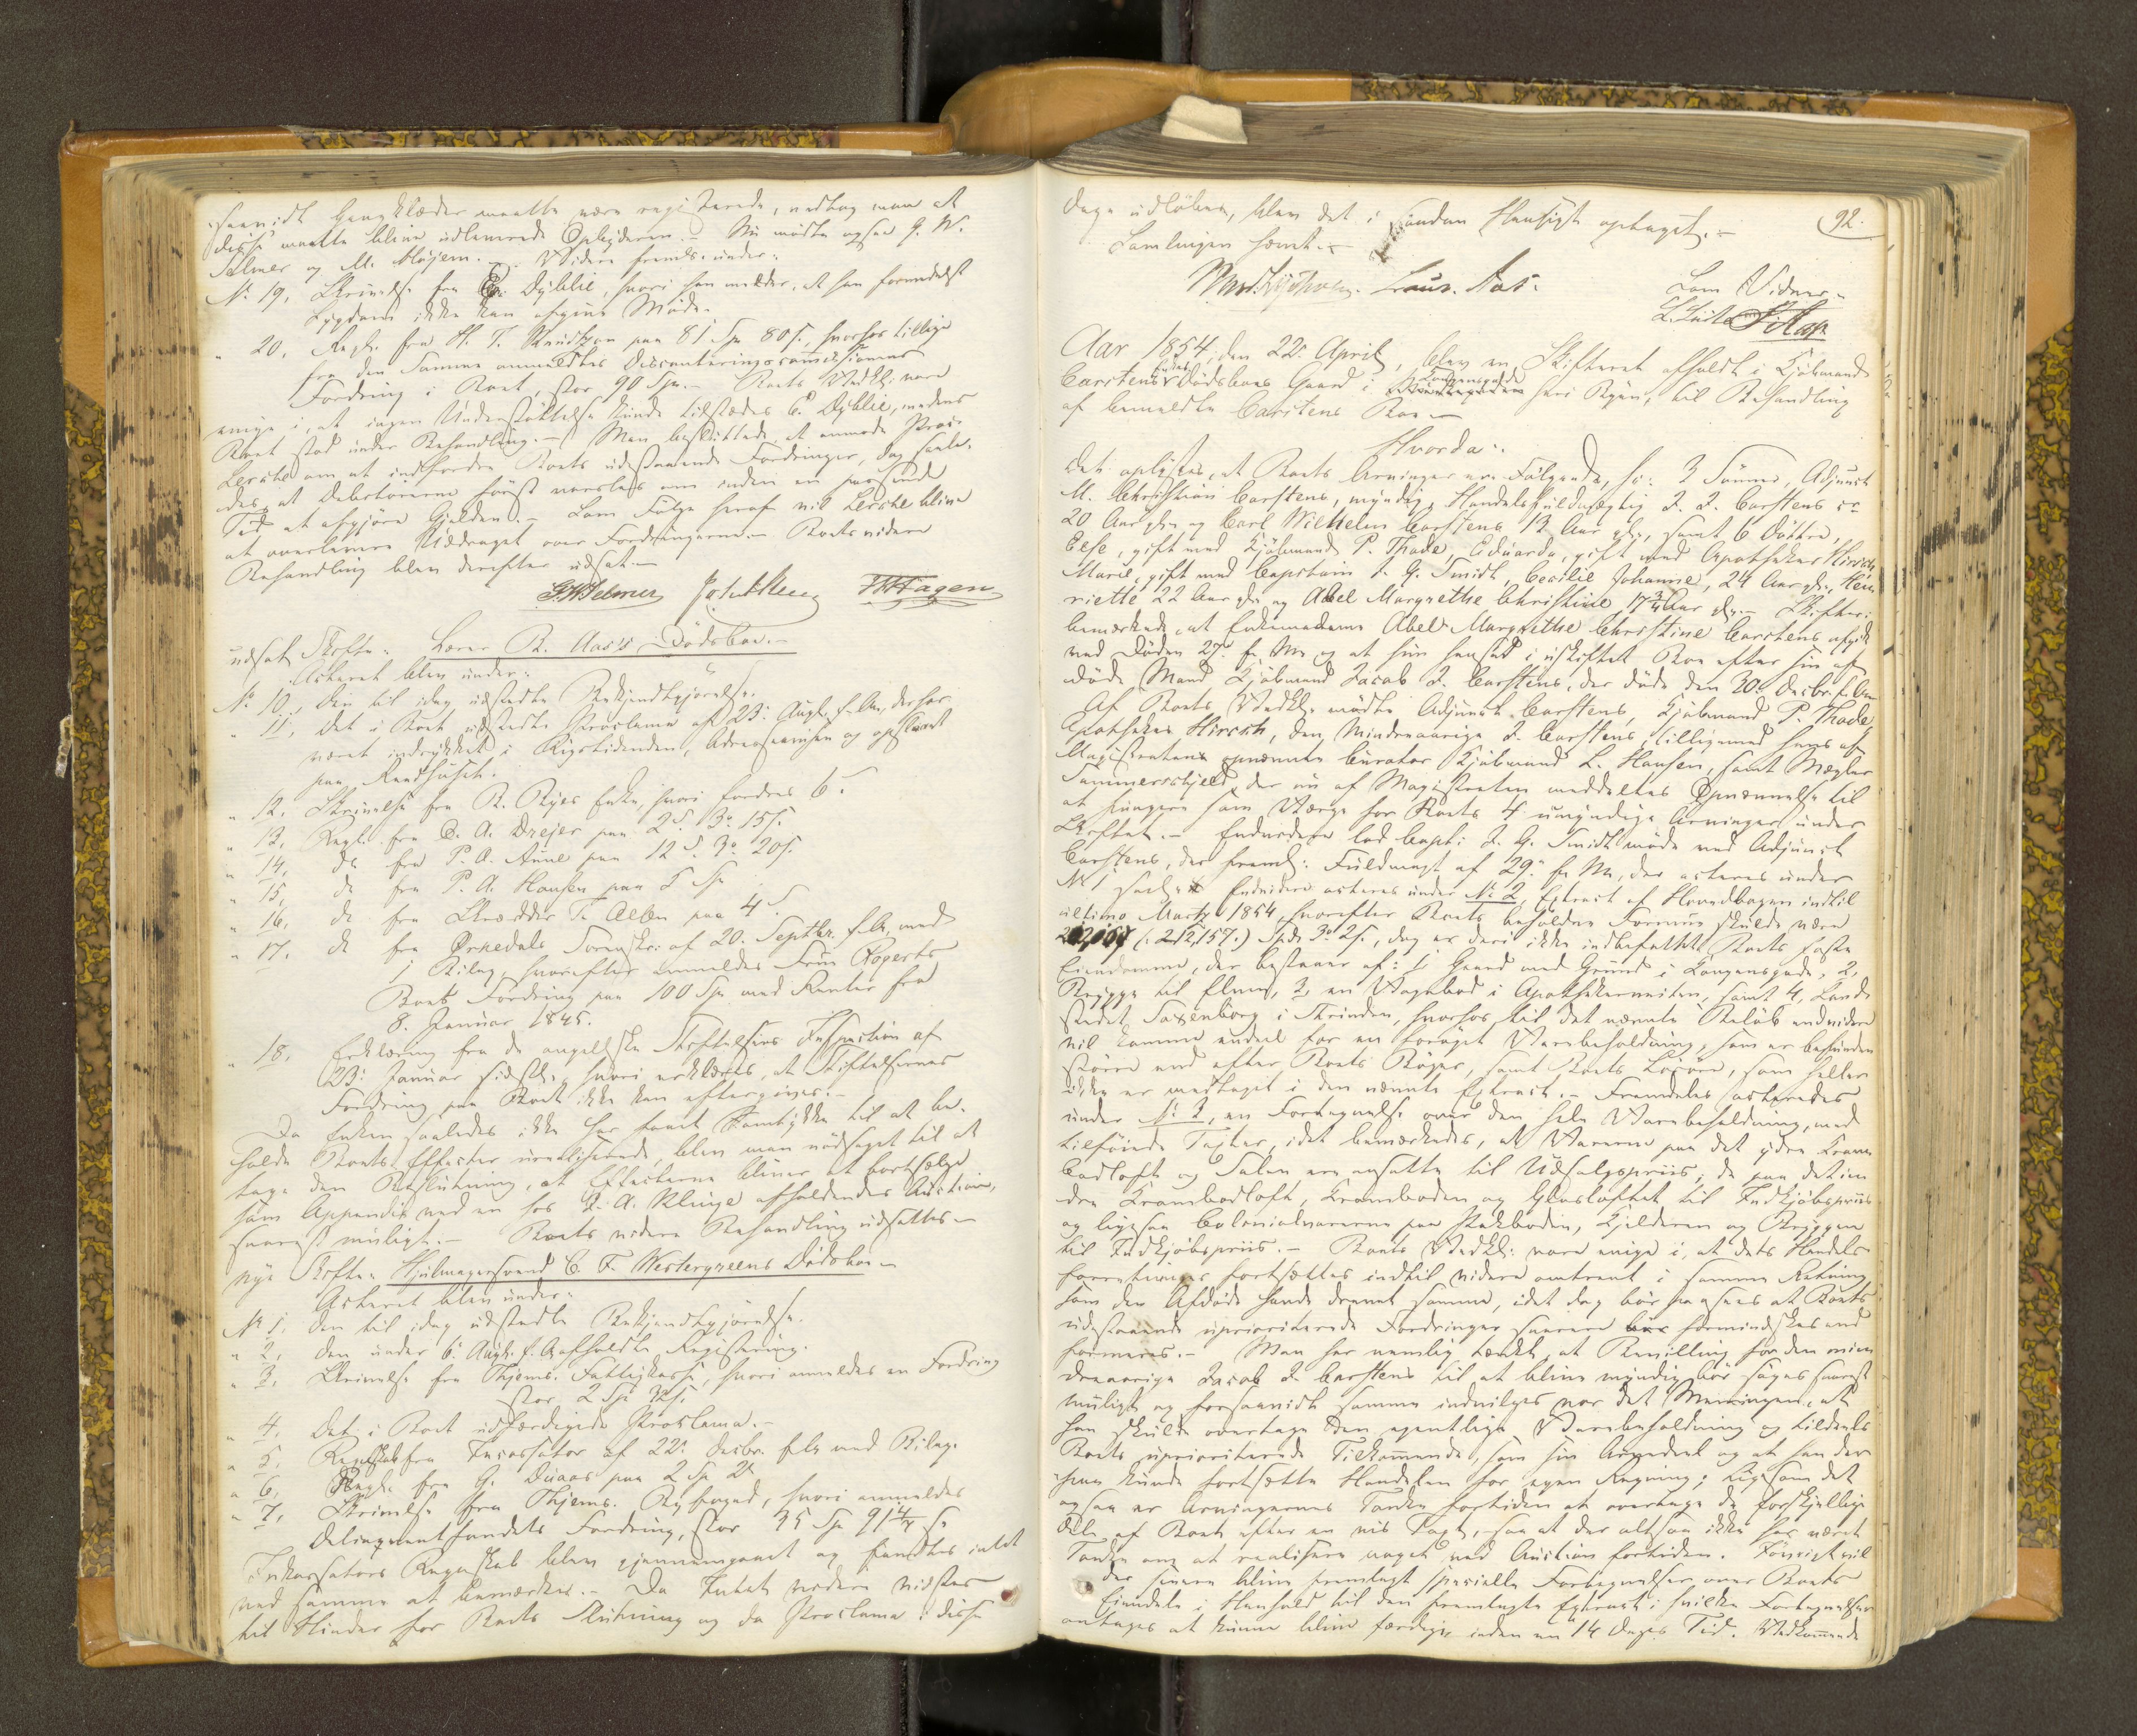 samidt Gangklæder maatte være registerede, vedtog man at
disse maatte blive udleverede Opbyderen. – Nu mødte ogsaa G. W.
Selmer og M. Højem. – Videre fremlæ. under:
No 19, Skrivelse fra C. Dyblie, hvori han melder, at han formedelst
Sygdom ikke kan afgive Møde.
" 20, Regn. fra H. T. Knudtzon paa 81 Spd 80 s., hvorhos tillige
fra den Samme anmeldtes Disconteringscommissionens
Fordring i Boet, stor 90 Spd. – Boets Vedk. vare
enige i, at ingen Understøttelse kunde tilstædes C. Dyblie, medens
Boet stod under Behandling. – Man besluttede at anmode Proc.
Lerche om at indfordre Boets udestaaende Fordringer, dog saale-
des, at Debitorerne først varsles om inden en passende
Tid at afgjøre Gjælden. – Som Følge heraf vil Lerche blive
at overlevere Uddraget over Fordringerne. – Boets videre
Behandling blev derefter udsat. –
G. W. Selmer FHHagen
udsat Skifte: Lærer B. Aas's Dødsbo. –
Acteret blev under:
No 10, Den til idag udstedte Bekjendtgjørelse.
" 11, Det i Boet udstedte Proclama af 23. Augt. f. A., der har
været indrykket i Rigstidenden, Adresseavisen og opslaaet
paa Raadhuset.
" 12, Skrivelse fra B. Ryes Enke, hvori fordres 6
" 13, Regn. fra C. A. Drejer paa 2 3 15 s.
" 14, do fra P. A. Aune paa 12 3 20 s.
" 15, do fra P. A. Hansen paa 5 Sp
" 16, do fra Skrædder T. Alben paa 4
" 17, do fra Ørkedals Sorenskr. af 20. Septbr. f. A., med
1 Bilag, hvorefter anmeldes Fru Rogerts
Boets Fordring paa 100 Spd med Renter fra
8. Januar 1845.
" 18, Erklæring fra de angellske Stiftelsers Inspection af
23. Januar sidstl., hvori erklæres, at Stiftelsernes
Fordring paa Boet ikke kan eftergives. –
Da Enken saaledes ikke har faaet Samtykke til at be-
holde Boets Effecter urealiserede, blev man nødsaget til at
tage den Beslutning, at Effecterne bliver at bortsælge
som Appendix ved en hos J. A. Klinge afholdendes Auction,
snarest muligt. – Boets videre Behandling udsattes –
nye Skifte: Hjulmagersvend C. F. Westergreens Dødsbo –
Acteret blev under:
No 1, Den til idag udstedte Bekjendtgjørelse.
" 2, den under 6. Augt. f. A. afholdte Registering.
" 3, Skrivelse fra Thjems. Fattigkasse, hvori anmeldes en Fordring
stor 2 Sp 32 s.
" 4, Det i Boet udfærdigede Proclama. –
" 5, Regnskab fra Incassator af 22. Decbr. f. A. med Bilage
" 6, Regn. fra G. Duaas paa 2 Sp 2
" 7, Skrivelse fra Thjems. Byfoged, hvori anmeldes
Delinquentfondets Fordring, stor 35 Sp 91
Inkassators Regnskab blev gjennemgaaet og fandtes intet
ved samme at bemærkes. – Da Intet videre vidstes
til Hinder for Boets Slutning og da Proclama i disse
92.
Dage udløber, blev det i saadan Hensigt optaget. –
Samlingen hævet. –
Laur. Aas. Som Vidner –
Aar 1854, den 22. April, blev en Skifteret afholdt i Kjøbmand
Carstens Enkes Dødsboes Gaard i Kongensgade her i Byen, til Behandling
af bemeldte Carstens Boe –
Hvorda:
Det oplystes, at Boets Arvinger ere Følgende, ss: 3 Sønner, Adjunct
M. Christian Carstens, myndig, Handelsfuldmægtig J. J. Carstens ca
20 Aar gl. og Carl Wilhelm Carstens 13 Aar gl., samt 6 Døttre,
Else, gift med Kjøbmand P. Thode, Eduarda, gift med Apotheker Hirsch
Marie, gift med Capitain J. G. Smidt, Cecilie Johanne, 24 Aar gl., Hen-
riette 22 Aar gl. og Abel Margrethe Christine 17 3/4 Aar gl. – Skifter.
bemærkede, at Enkemadame Abel Margrethe Christine Carstens afgik
ved Døden 27. f. M. og at hun hensad i uskiftet Boe efter sin af-
døde Mand Kjøbmand Jacob J. Carstens, der døde den 30. Decbr. f. A.
Af Boets Vedk. mødte Adjunct Carstens, Kjøbmand P. Thode,
Apotheker Hirsch, den Mindreaarige J. Carstens, tilligemed hans af
Magistraten opnævnte Curator Kjøbmand L. Hansen, samt Mægler
Sommerschjeld, der nu af Magistraten meddeltes Opnævnelse til
at fungere som Værge for Boets 4 umyndige Arvinger under
Skiftet. – Endvidere lod Capt: J. G. Smidt møde ved Adjunct
Carstens, der freml: Fuldmagt af 29. f. M., der acteres under
No 1 Endvidere acteres under No 2, Extract af Hovedbogen indtil
ultimo Marts 1854, hvorefter Boets beholdne Formue skulde være
(: 212,157.) Spd. 3 2 s., dog er deri ikke indbefattet Boets faste
Eiendomme, der bestaaer af: 1, Gaard med Grund i Kongensgade, 2,
Brygge til Elven, 3, en Vognbod i Apothekerveiten, samt 4, Land-
stedet Saxenborg i Strinden, hvorhos til det nævnte Beløb endvidere
vil komme endeel for en forøget Varebeholdning, som er befunden
større end efter Boets Bøger, samt Boets Løsøre, som heller
ikke er medtaget i den nævnte Extract. – Fremdeles acteredes
under No 3, en Fortegnelse over den hele Varebeholdning, med
tilføiede Taxter, idet bemærkedes, at Varerne paa det ydre Kram-
bodloft og Salen ere ansatte til Udsalgspriis, de paa det in-
dre Krambodloft, Kramboden og Glasloftet til Indkjøbspriis
og ligesaa Colonialvarerne paa Pakboden, Kjelderen og Bryggen
til Indkjøbspriis. – Boets Vedk: vare enige i, at dets Handels-
forretninger fortsættes indtil videre omtrent i samme Retning
som den Afdøde havde drevet samme, idet dog bør paasees at Boets
udestaaende uprioriterede Fordringer snarere formindskes end
forøges. – Man har nemlig tænkt, at Bevilling for den min-
dreaarige Jacob J. Carstens til at blive myndig bør søges snarest
muligt og forsaavidt samme indvilges var det Meningen, at
han skulde overtage den egentlige Varebeholdning og tildeels
Boets uprioriterede Tilkommende, som sin Arvedeel og at han der-
paa kunde fortsætte Handelen for egen Regning; ligesom det
ogsaa er Arvingernes Tanke fortiden at overtage de forskjellige
Dele af Boet efter en vis Taxt, saa at der altsaa ikke har været
Tanke om at realisere noget ved Auction fortiden. Forøvrigt vil
der senere blive fremlagt specielle Fortegnelser over Boets
Eiendele i Henhold til den fremlagte Extract, hvilke Fortegnelser
antages at kunne blive færdige inden en 14 Dages Tid. Vedkommende